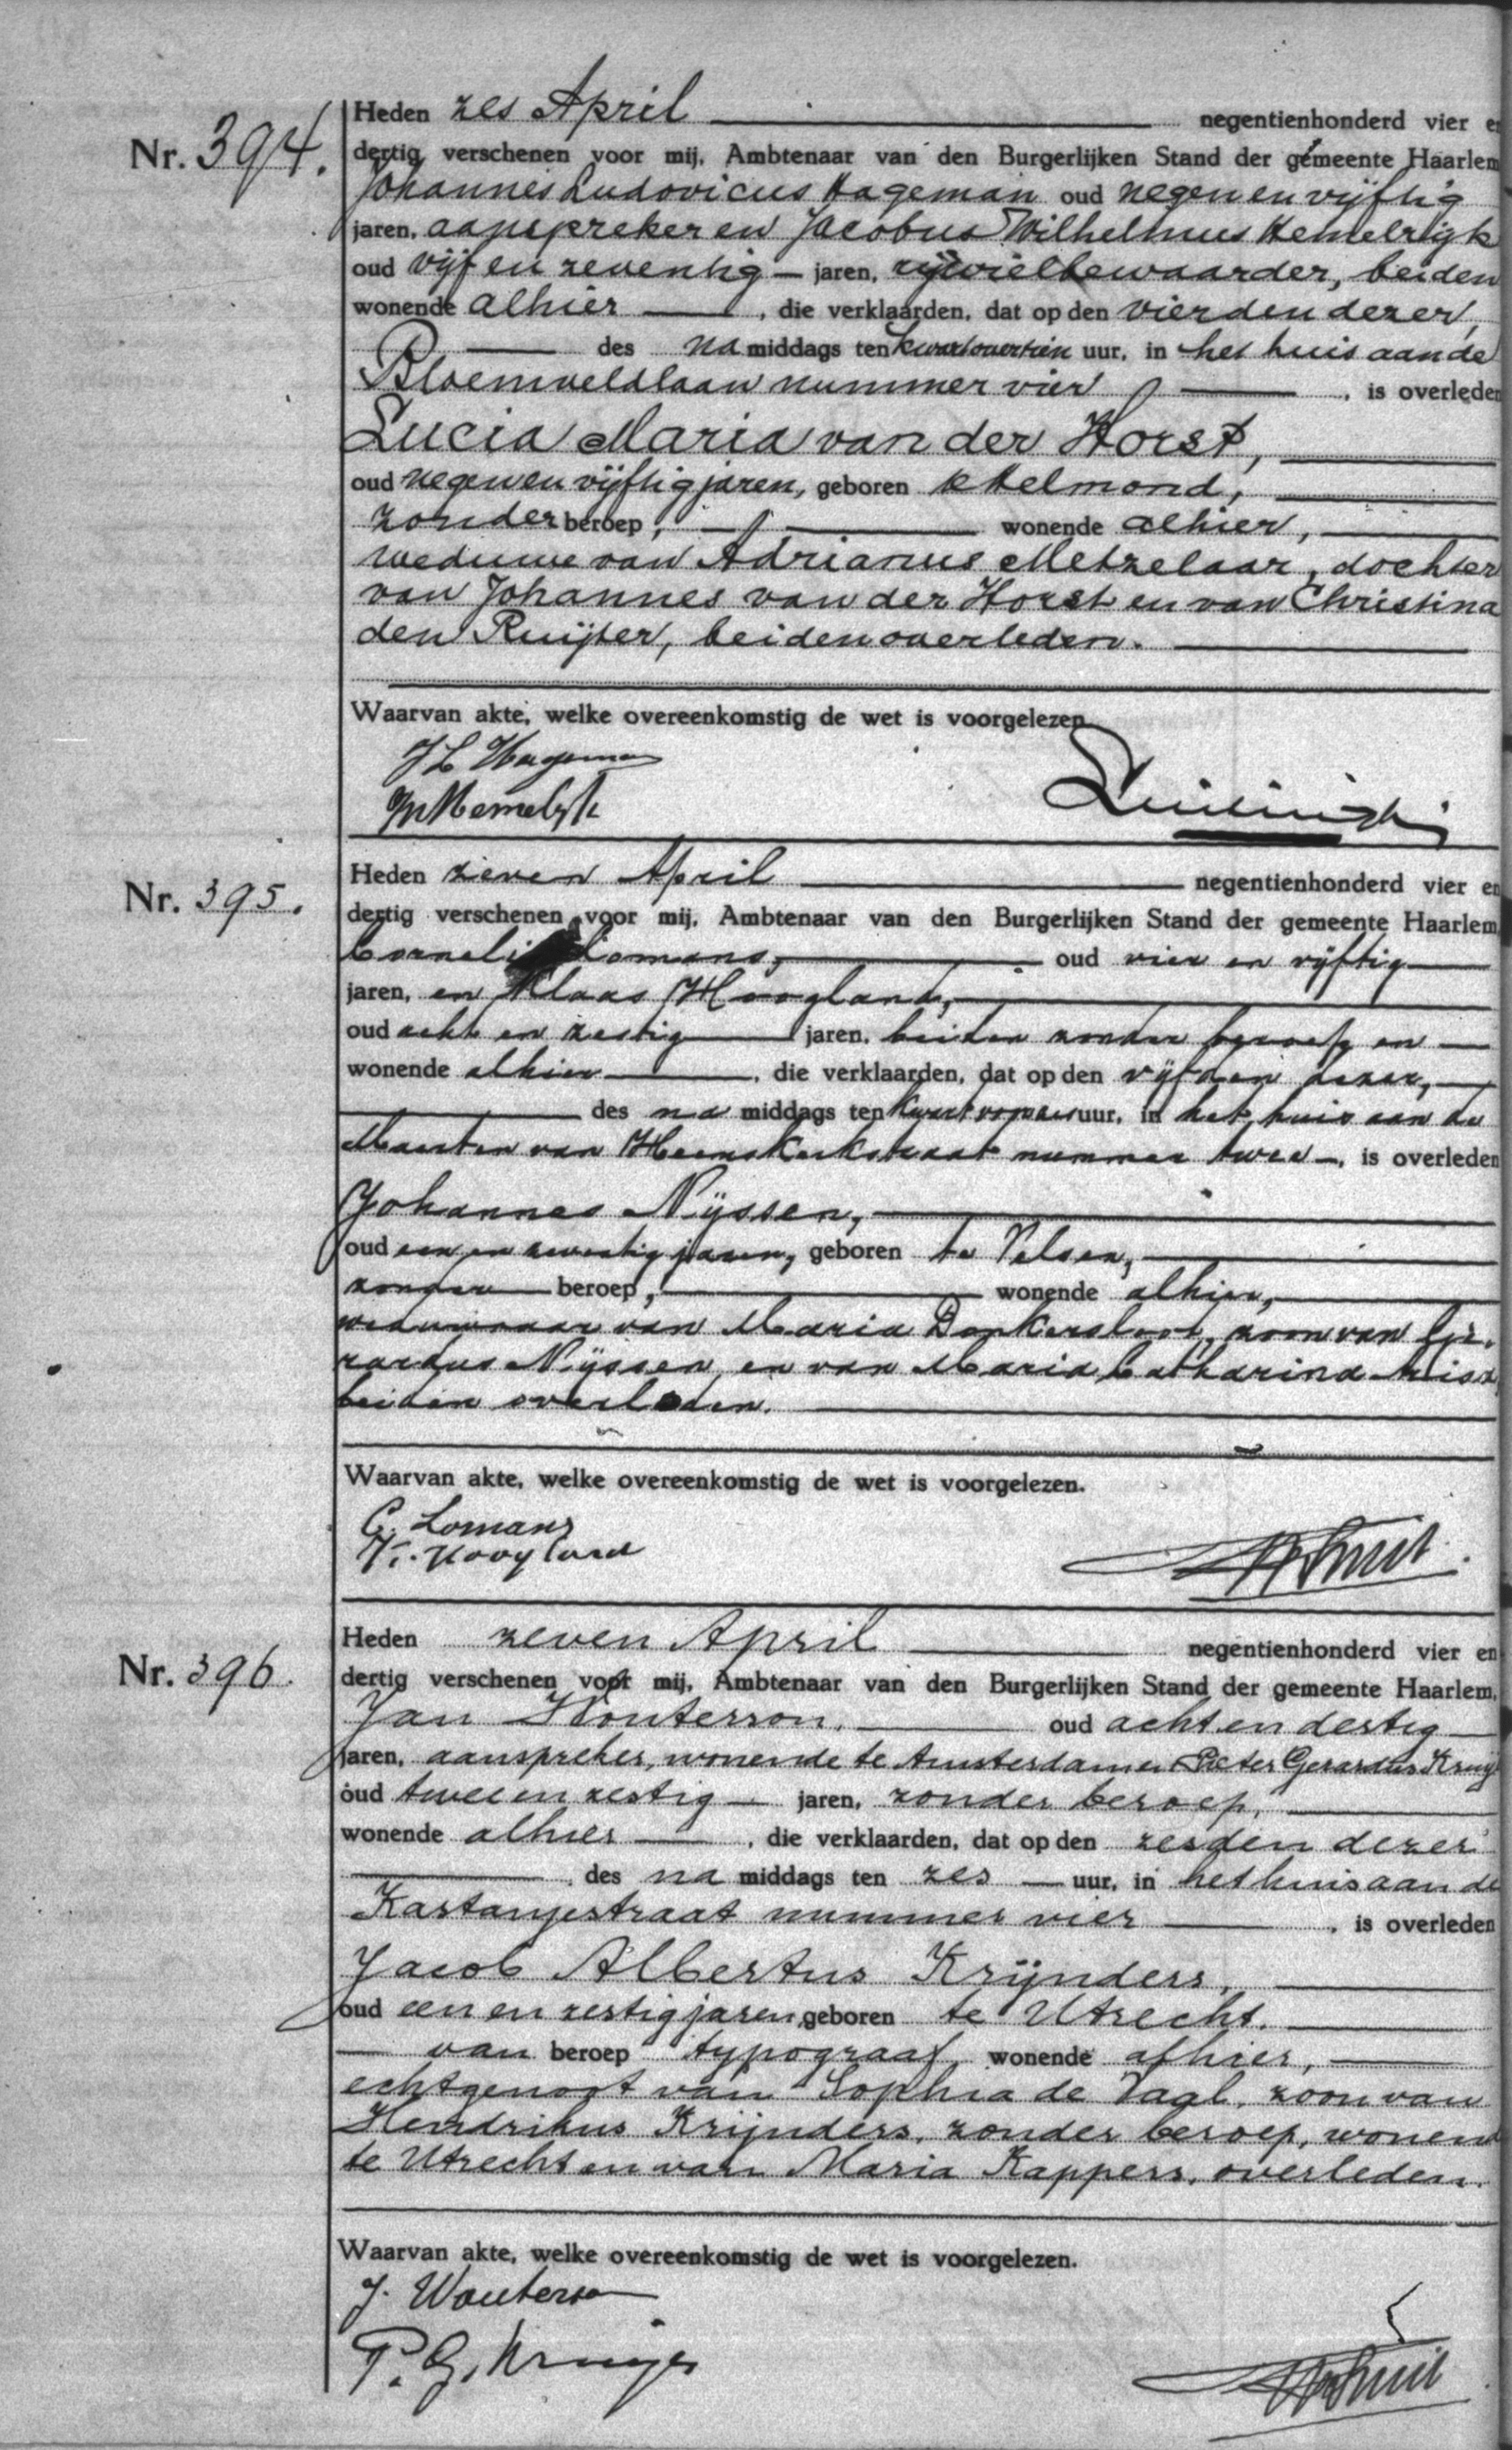 Nr. 394.
Heden zes April negentienhonderd vier e
dertig verschenen voor mij, Ambtenaar van den Burgerlijken Stand der gemeente Haarlem
Johannes Ludovicus Hageman oud negen en vijftig
jaren, aanspreker en Jacobus Wilhelmus Hemelrijk
oud vijf en zeventig — jaren, rijwielbewaarder, beiden
wonende alhier —, die verklaarden, dat op den vierden dezer,
— des na middags ten kwart over tien uur, in het huis aan de
Bloemveldlaan nummer vier —, is overleden
Lucia Maria van der Horst,
oud negen en vijftig jaren, geboren te Helmond,
zonder beroep, — wonende alhier,
weduwe van Adrianus Metzelaar, dochter
van Johannes van der Horst en van Christina
den Ruijter, beiden overleden.
Waarvan akte, welke overeenkomstig de wet is voorgelezen
J L Hageman
JW Hemelrijk
Nr. 395.
Heden zeven April — negentienhonderd vier en
dertig verschenen voor mij, Ambtenaar van den Burgerlijken Stand der gemeente Haarlem,
Cornelis Lomans, — oud vier en vijftig —
jaren, en Klaas Hoogland, —
oud acht en zestig — jaren, beiden zonder beroep en —
wonende alhier —, die verklaarden, dat op den vijfden dezer, —
— des na middags ten kwart voor uur, in het huis aan de
Maerten van Heemskerkstraat nummer twee —, is overleden
Johannes Nijssen, —
oud een en zeventig jaren, geboren te Velsen, —
zonder — beroep, — wonende alhier, —
weduwnaar van Maria Donkersloot, zoon van Ge-
rardus Nijssen en van Maria Catharina
beiden overleden. —
Waarvan akte, welke overeenkomstig de wet is voorgelezen.
C. Lomans
K. Hoogland
Nr. 396.
Heden zeven April — negentienhonderd vier en
dertig verschenen voor mij, Ambtenaar van den Burgerlijken Stand der gemeente Haarlem,
Jan Wouterson, — oud acht en dertig —
jaren, aanspreker, wonende te Amsterdam en Pieter Gerardus Kruij
oud twee en zestig — jaren, zonder beroep, —
wonende alhier —, die verklaarden, dat op den zesden dezer
—, des na middags ten zes — uur, in het huis aan de
Kastanjestraat nummer vier —, is overleden
Jacob Albertus Krijnders, —
oud een en zestig jaren, geboren te Utrecht. —
— van beroep typograaf, wonende alhier, —
echtgenoot van Sophia de Vaal, zoon van
Hendrikus Krijnders, zonder beroep, wonend
te Utrecht en van Maria Kappers, overleden.
Waarvan akte, welke overeenkomstig de wet is voorgelezen.
J. Wouterson
P. G. Kruijer